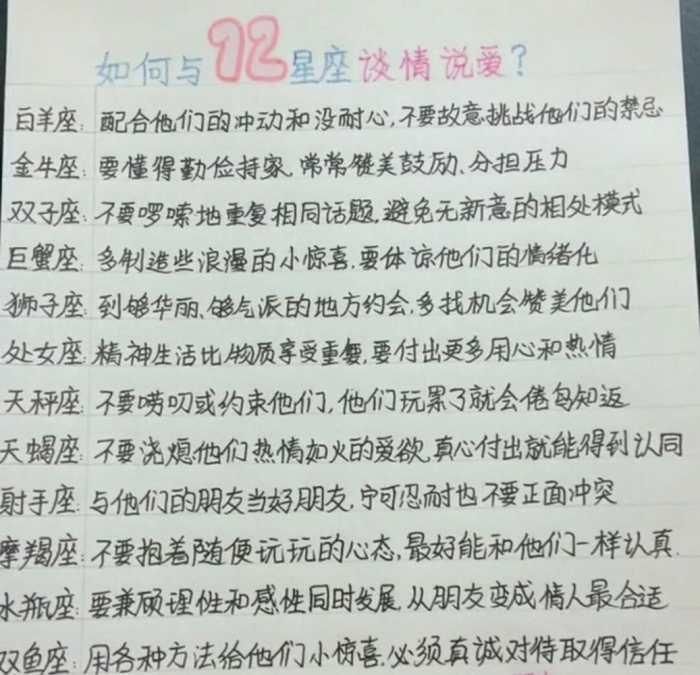 如何与12星座谈情说爱?
白羊座: 配合他们的冲动和没耐心,不要故意挑战他们的禁忌
金牛座: 要懂得勤俭持家,常常赞美鼓励、分担压力
双子座: 不要啰嗦地重复相同话题,避免无新意的相处模式
巨蟹座: 多制造些浪漫的小惊喜,要体谅他们的情绪化
狮子座: 到够华丽、够气派的地方约会,多找机会赞美他们
处女座: 精神生活比物质享受重要,要付出更多用心和热情
天秤座: 不要唠叨或约束他们,他们玩累了就会倦鸟知返
天蝎座: 不要浇熄他们热情如火的爱欲,真心付出就能得到认同
射手座: 与他们的朋友当好朋友,宁可忍耐也不要正面冲突
摩羯座: 不要抱着随便玩玩的心态,最好能和他们一样认真.
水瓶座: 要兼顾理性和感性同时发展,从朋友变成情人最合适
双鱼座: 用各种方法给他们小惊喜,必须真诚对待取得信任